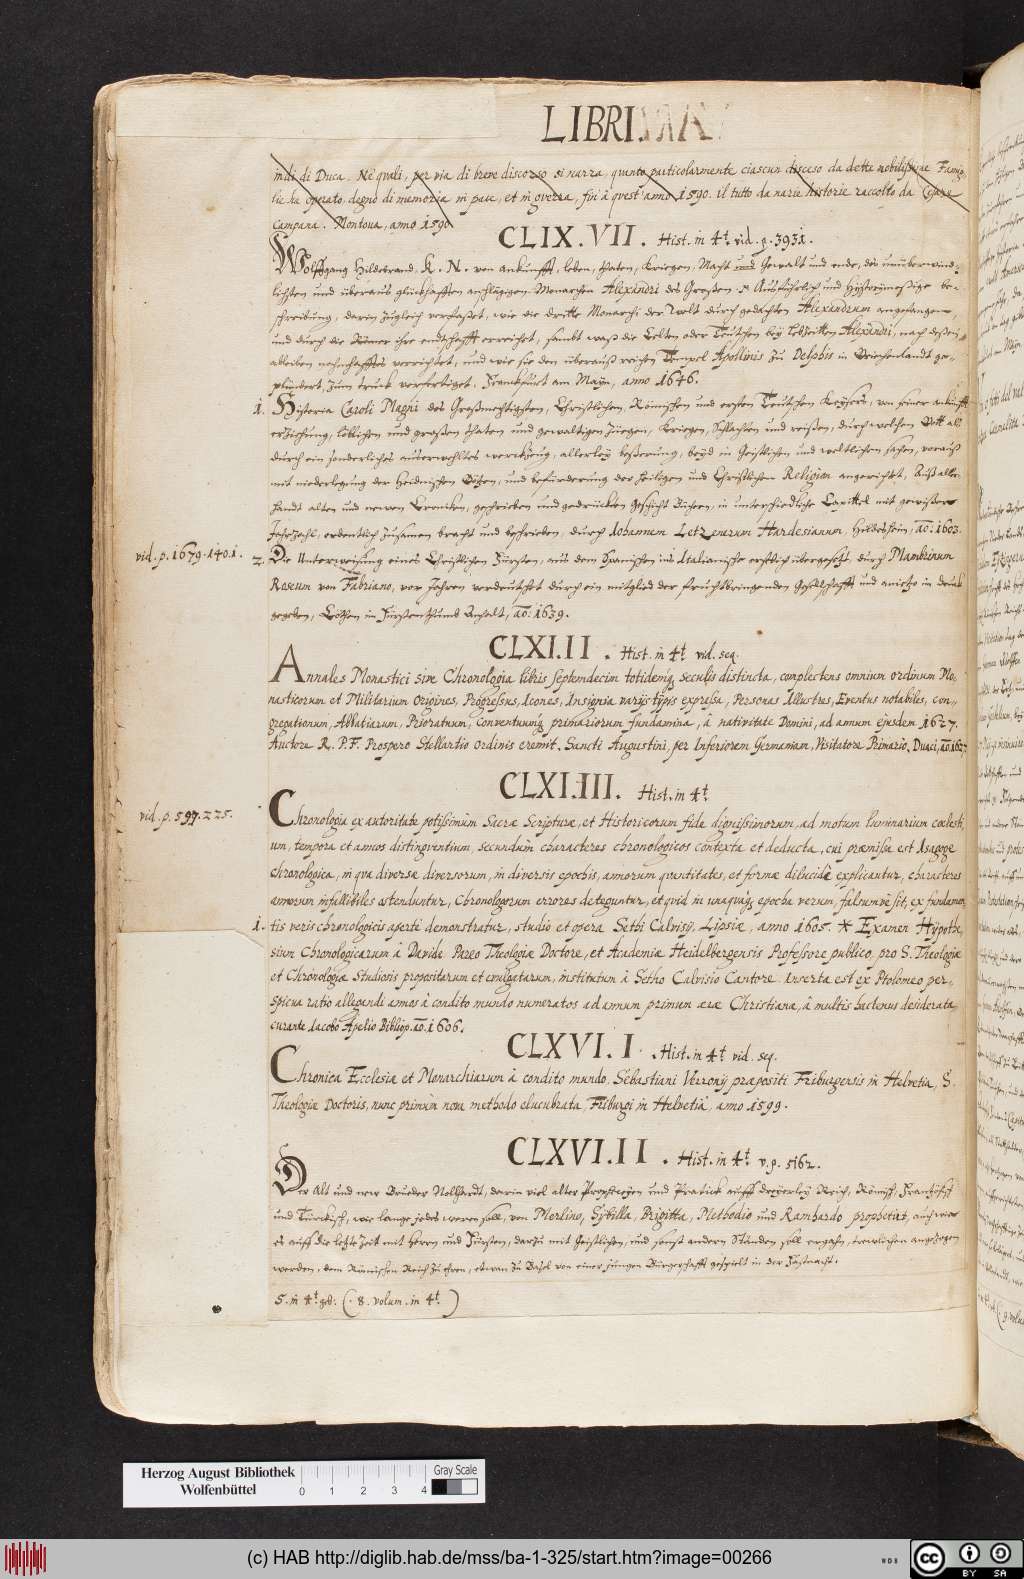 LIBRI
indi di Duca. Ne' quali, per via di breve discorso si narra, quanto particolarmente ciascun disceso da dette nobilissime Famig-
lie ha operato, degno di memoria in pace, et in guerra, fin à quest' anno 1590. il tutto da varie historie raccolto da Cesare
Campana. Mantoua, anno 1590
CLIX.VII. Hist. in 4t. vid. p. 3931.
Wolffgang Hildebrand, K. N. von ankunfft, leben, thaten, Kriegen, Macht und Gewalt und ende, des unüberwind-
lichsten und überaus glückhafften anschlägigen Monarchen Alexandri des Grossen. Ausführliche und Hystorymessige be-
schreibung, darin zugleich verfasset, wie die dritte Monarchi der Welt durch gedachten Alexandrum angefangen,
und durch die Römer ihre endtschafft erreichet, sambt was die Celten oder Teutschen bey lebzeitten Alexandri, nach dessen
ableiben verrichtet, und wie sie den überaus reichen Tempel Apollinis zu Delphis in Griechenlandt ge-
plündert, zum truck verfertiget. Franckfurt am Mayn, anno 1646.
1. Historia Caroli Magni des Großmechtigsten, Christlichen, Römischen und ersten Teutschen Keysers, von seiner ankunfft
erziehung, löblichen und grossen thaten und gewaltigen zuegen, Kriegen, Schlachten und reisen, durch welchen Gott all
durch ein sonderliches auserwehltes werckzeug, allerley besserung, beyd in Geistlichen und weltlichen sachen, voraus
mit niederlegung der Heidnischen Götzen, und befürderung der heiligen und Christlichen Religion angerichtet, Auß aller-
handt alten und newen Croniken, geschrieben und gedruckten geschicht Büchern, in unterschiedliche Capittel mit gewisser
Jahrzahl, ordentlich zusamen bracht und beschrieben, durch Iohannem Letznerum Hardesianum, Hildesheim, ao. 1603.
vid. p. 1679. 1401.
2. Die Unterweisung eines Christlichen Fürsten, aus dem Spanischen ins Italianische erstlich übergesetzt, durch Mambrinum
Roseum von Fabriano, vor Jahren verdeutschet durch ein mitglied der fruchtbringenden Gesellschafft und anietzo in druck
gegeben, Cöthen im Fürstenthumb Anhalt, ao. 1639.
CLXI.II. Hist. in 4t. vid. seq.
Annales Monastici sive Chronologia libris septemdecim totidemq; seculis distincta, complectens omnium ordinum Mo-
nasticorum et Militarium Origines, Progressus, Icones, Insignia varijs typis expressa, Personas Illustres, Eventus notabiles, con-
gregationum, Abbatiarum, Prioratuum, Conventuumq; primariorum fundamina, à nativitate Domini, ad annum ejusdem 1627.
Auctore R. P. F. Prospero Stellartio ordinis eremit. Sancti Augustini, per Inferiorem Germaniam, Visitatore Primario. Duaci, ao. 1627
CLXI.III. Hist. in 4t.
vid. p. 597. 225.
Chronologia ex autoritate potissimùm Sacræ Scripturæ, et Historicorum fide dignissimorum, ad motum luminarium coelesti-
um, tempora et annos distinguentium, secundùm characteres chronologicos contexta et deducta, cui præmissa est Isagoge
chronologica, in qua diversæ diversorum, in diversis epochis, annorum quantitates, et formæ dilucidè explicantur, characteres
annorum infallibiles ostenduntur, Chronologorum errores deteguntur, et quid in unaquaq; epocha verum, falsumvè sit, ex fundamen-
tis veris chronologicis aperte demonstratur, studio et opera Sethi Calvisy. Lipsiæ, anno 1605. *
1. Examen Hypothe-
sium Chronologicarum à Davide Pareo Theologiæ Doctore, et Academiæ Heidelbergensis Professore publico, pro S. Theologiæ
et Chronologiæ Studiosis propositarum et evulgatarum, institutum à Setho Calvisio Cantore. Inserta est ex Ptolomeo per-
spicua ratio allegandi annos à condito mundo numeratos ad annum primum æræ Christianæ, à multis hactenus desiderata,
curante Iacobo Apelio Bibliop. ao. 1606.
CLXVI.I. Hist. in 4t vid. seq.
Chronica Ecclesiæ et Monarchiarum à condito mundo, Sebastiani Verrony præpositi Friburgensis in Helvetia, S.
Theologiæ Doctoris, nunc primùm nova methodo elucubrata, Friburgi in Helvetiâ, anno 1599.
CLXVI.II. Hist. in 4t. v. p. 5162.
Der Alt und new Brueder Nollhardt, darin viel alter Propheceyen und Pratick auff dreyerley Reich, Römisch, Frantzösisch
und Türckisch, wie lange jedes weren soll, von Merlino, Sybilla, Brigitta, Methodio und Ramhardo prophetirt, auch wie
es auff die letzte Zeitt mit Herrn und Fürsten, darzu mit Geistlichen, und sonst andern Ständen soll ergehn, trewlichen angezogen
werden, dem Römischen Reich zu ehren, etwan zu Basel von einer jungen Bürgerschafft gespielt in der Fastnacht.
5. in 4t. geb. (. 8. volum. in 4t.)
Herzog August Bibliothek
Wolfenbüttel
0 1 2 3 4
Gray Scale
(c) HAB http://diglib.hab.de/mss/ba-1-325/start.htm?image=00266
WDB
cc BY SA